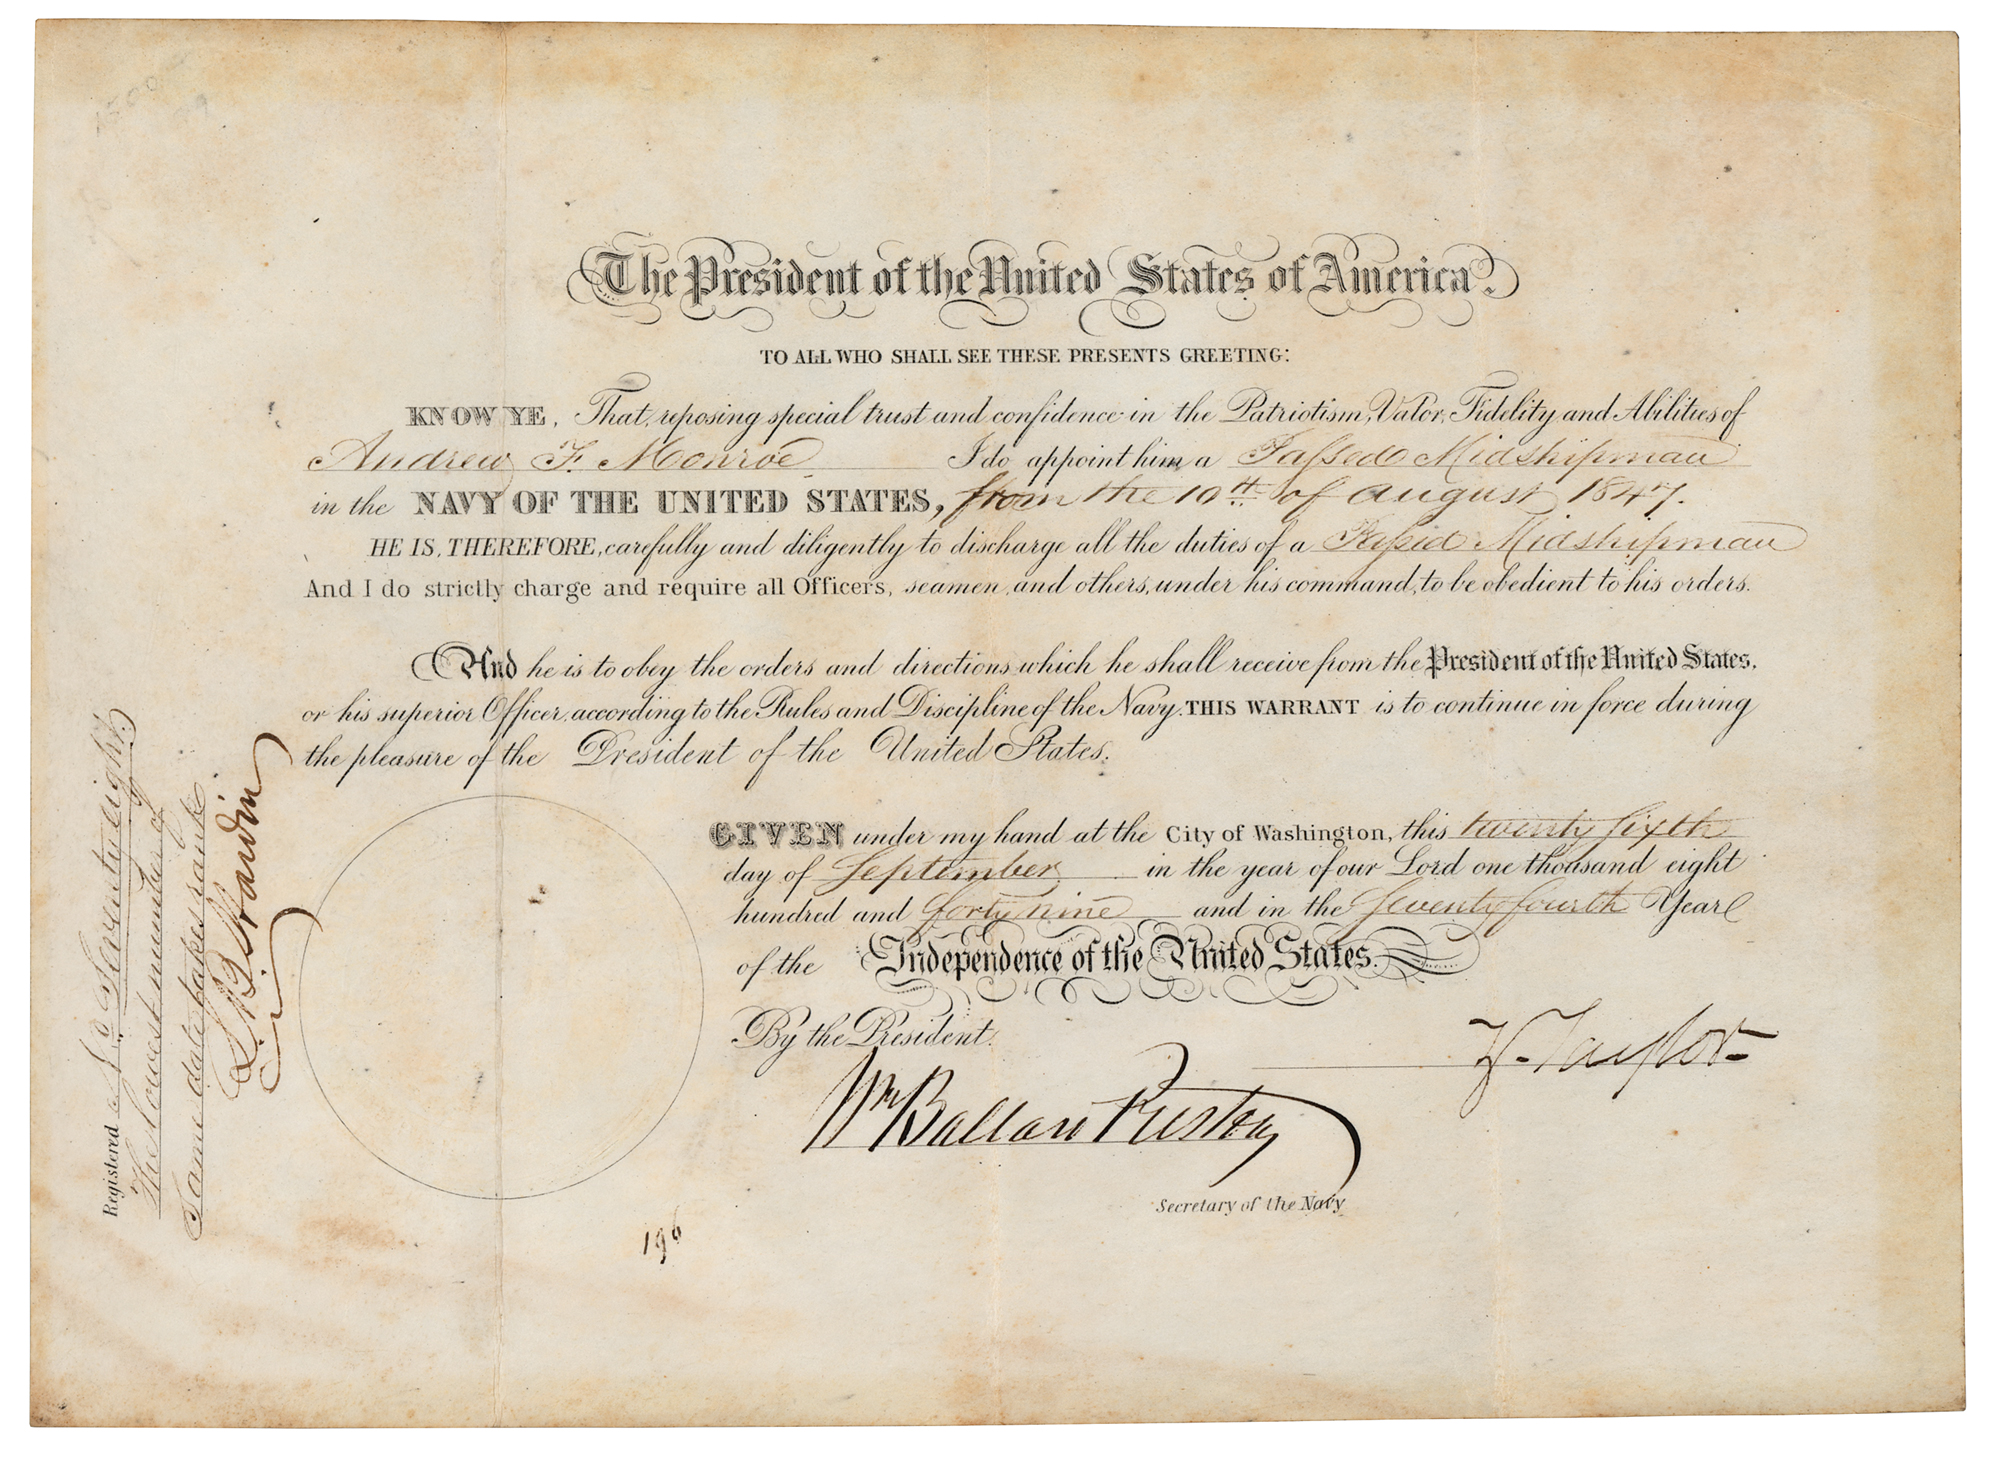 The President of the United States of America.
TO ALL WHO SHALL SEE THESE PRESENTS GREETING:
KNOW YE, That, reposing special trust and confidence in the Patriotism, Valor, Fidelity and Abilities of
Andrew F. Monroe I do appoint him a Passed Midshipman
in the NAVY OF THE UNITED STATES, from the 10th of August 1847.
HE IS, THEREFORE, carefully and diligently to discharge all the duties of a Passed Midshipman
And I do strictly charge and require all Officers, seamen, and others, under his command, to be obedient to his orders.
And he is to obey the orders and directions which he shall receive from the President of the United States,
or his superior Officer, according to the Rules and Discipline of the Navy. THIS WARRANT is to continue in force during
the pleasure of the President of the United States.
GIVEN under my hand at the City of Washington, this twenty sixth
day of September in the year of our Lord one thousand eight
hundred and forty nine and in the Seventy fourth Year
of the Independence of the United States.
By the President.
Z. Taylor
Wm Ballard Preston
Secretary of the Navy
Registered Seventy eight.
The lowest number of
Same date takes rank.
Hardin
196